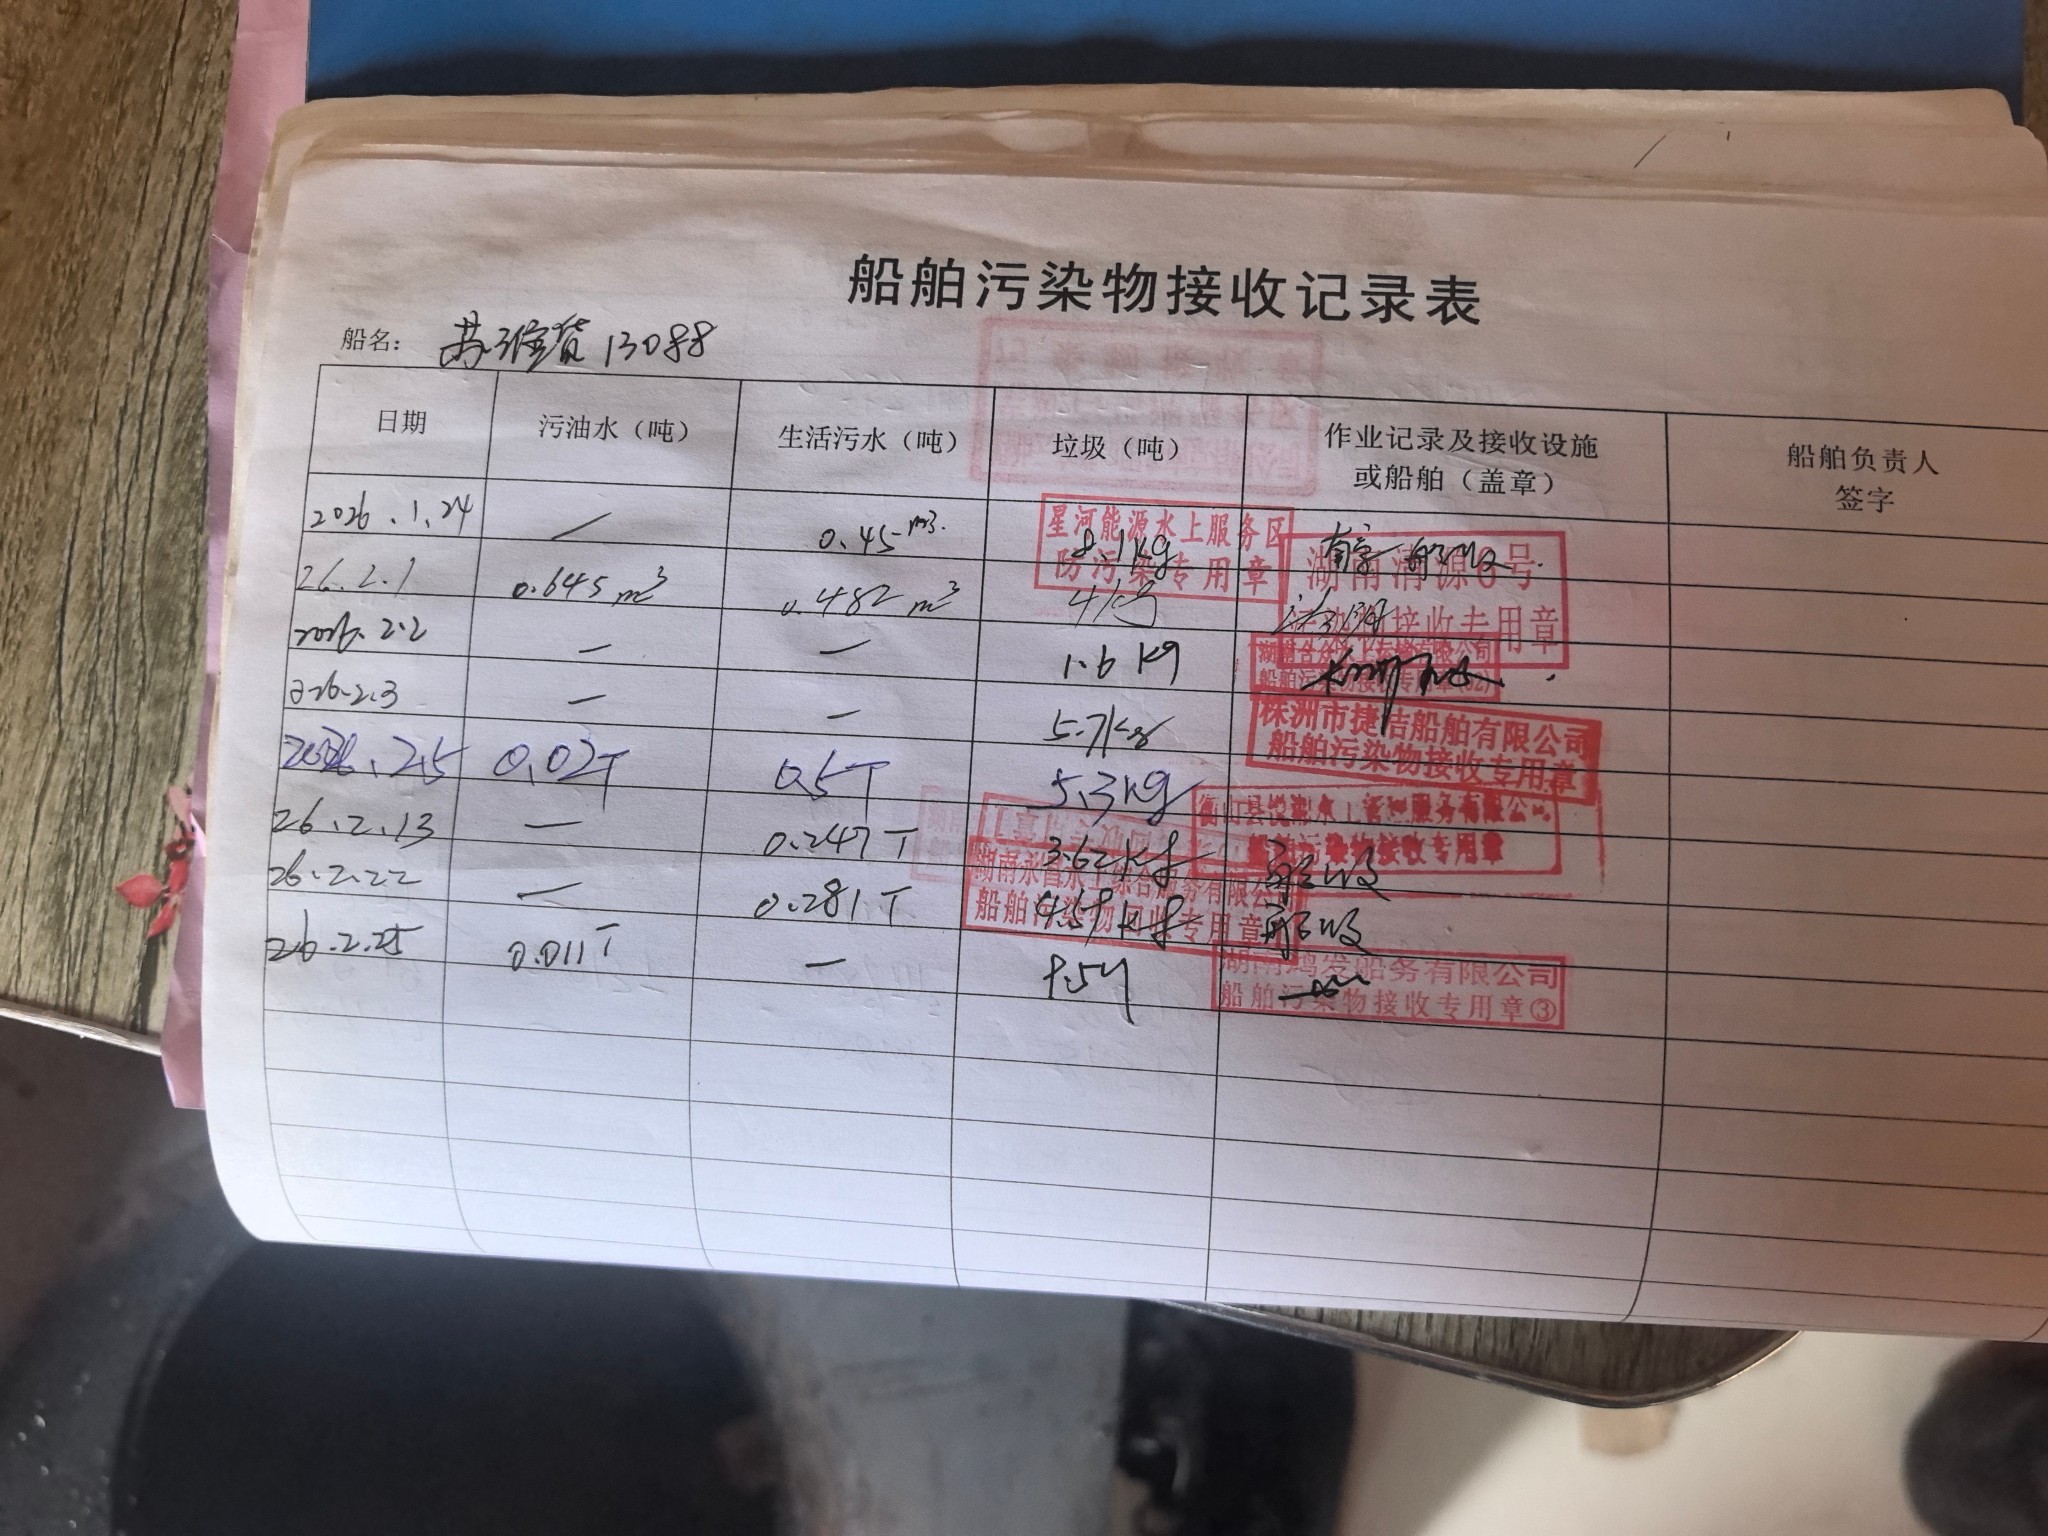 船舶污染物接收记录表
船名： 苏淮货13088
日期 污油水（吨） 生活污水（吨） 垃圾（吨） 作业记录及接收设施或船舶（盖章） 船舶负责人签字
2026.1.24 — 0.45m³. 8.1kg
星河能源水上服务区
防污染专用章
26.2.1 0.645m³ 0.482m³ 4kg
湖南清源6号
接收专用章
2026.2.2 — — 1.6kg
船舶污染物接收专用章
2026.2.3 — — 5.7kg
株洲市捷洁船舶有限公司
船舶污染物接收专用章
2026.2.5 0.02T 0.5T 5.3kg
服务有限公司
船舶污染物接收专用章
26.2.13 — 0.247T 3.62kg
26.2.22 — 0.281T
湖南永昌水上综合服务有限公司
船舶污染物回收专用章
26.2.25 0.011T —
湖南鸿发船务有限公司
船舶污染物接收专用章③